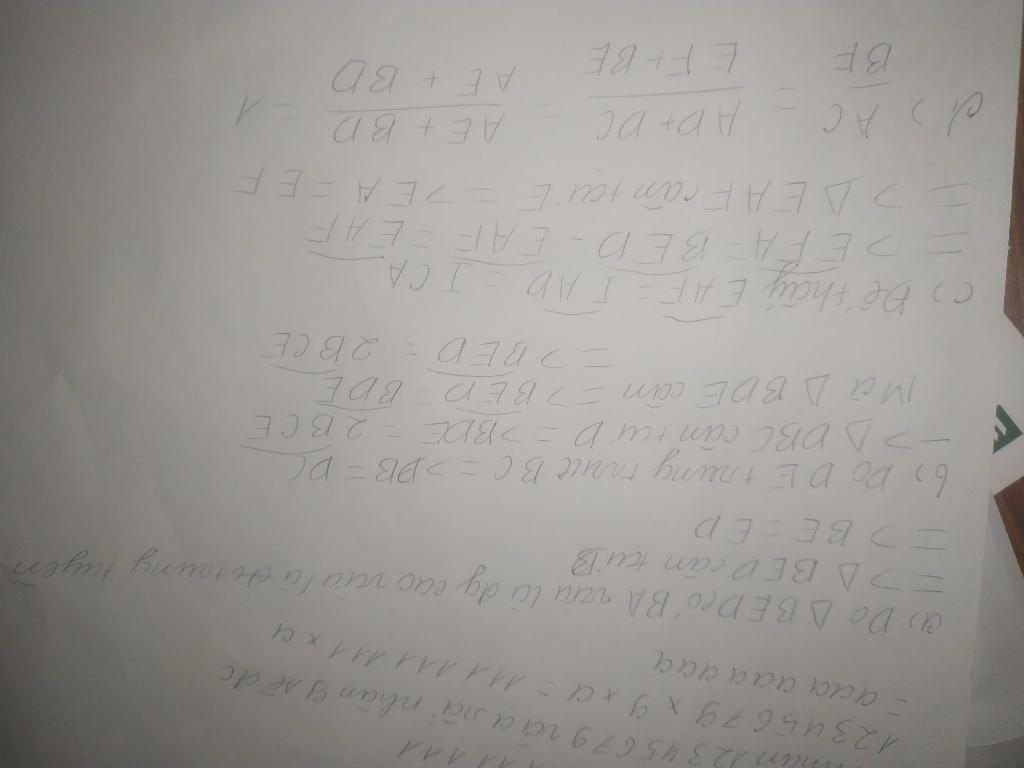 11 111
nhân 12345679 với a rồi nhân 9 sẽ đc
12345679 × 9 × a = 111 111 111 × a
= aaa aaa aaa
a) Do △ BED có BA vừa là đg cao vừa là đg trung tuyến
=> △ BED cân tại B
=> BE = ED
b) Do DE trung trực BC => DB = DC
-> △ DBC cân tại D => BDE = 2BCE
Mà △ BDE cân => BED = BDE
=> BED = 2BCE
c) Dễ thấy EAF = IAD = ICA
=> EFA = BED - EAF = EAF
=> △ EAF cân tại E => EA = EF
d) AC / BF = AD + DC / EF + BE = AE + BD / AE + BD = 1